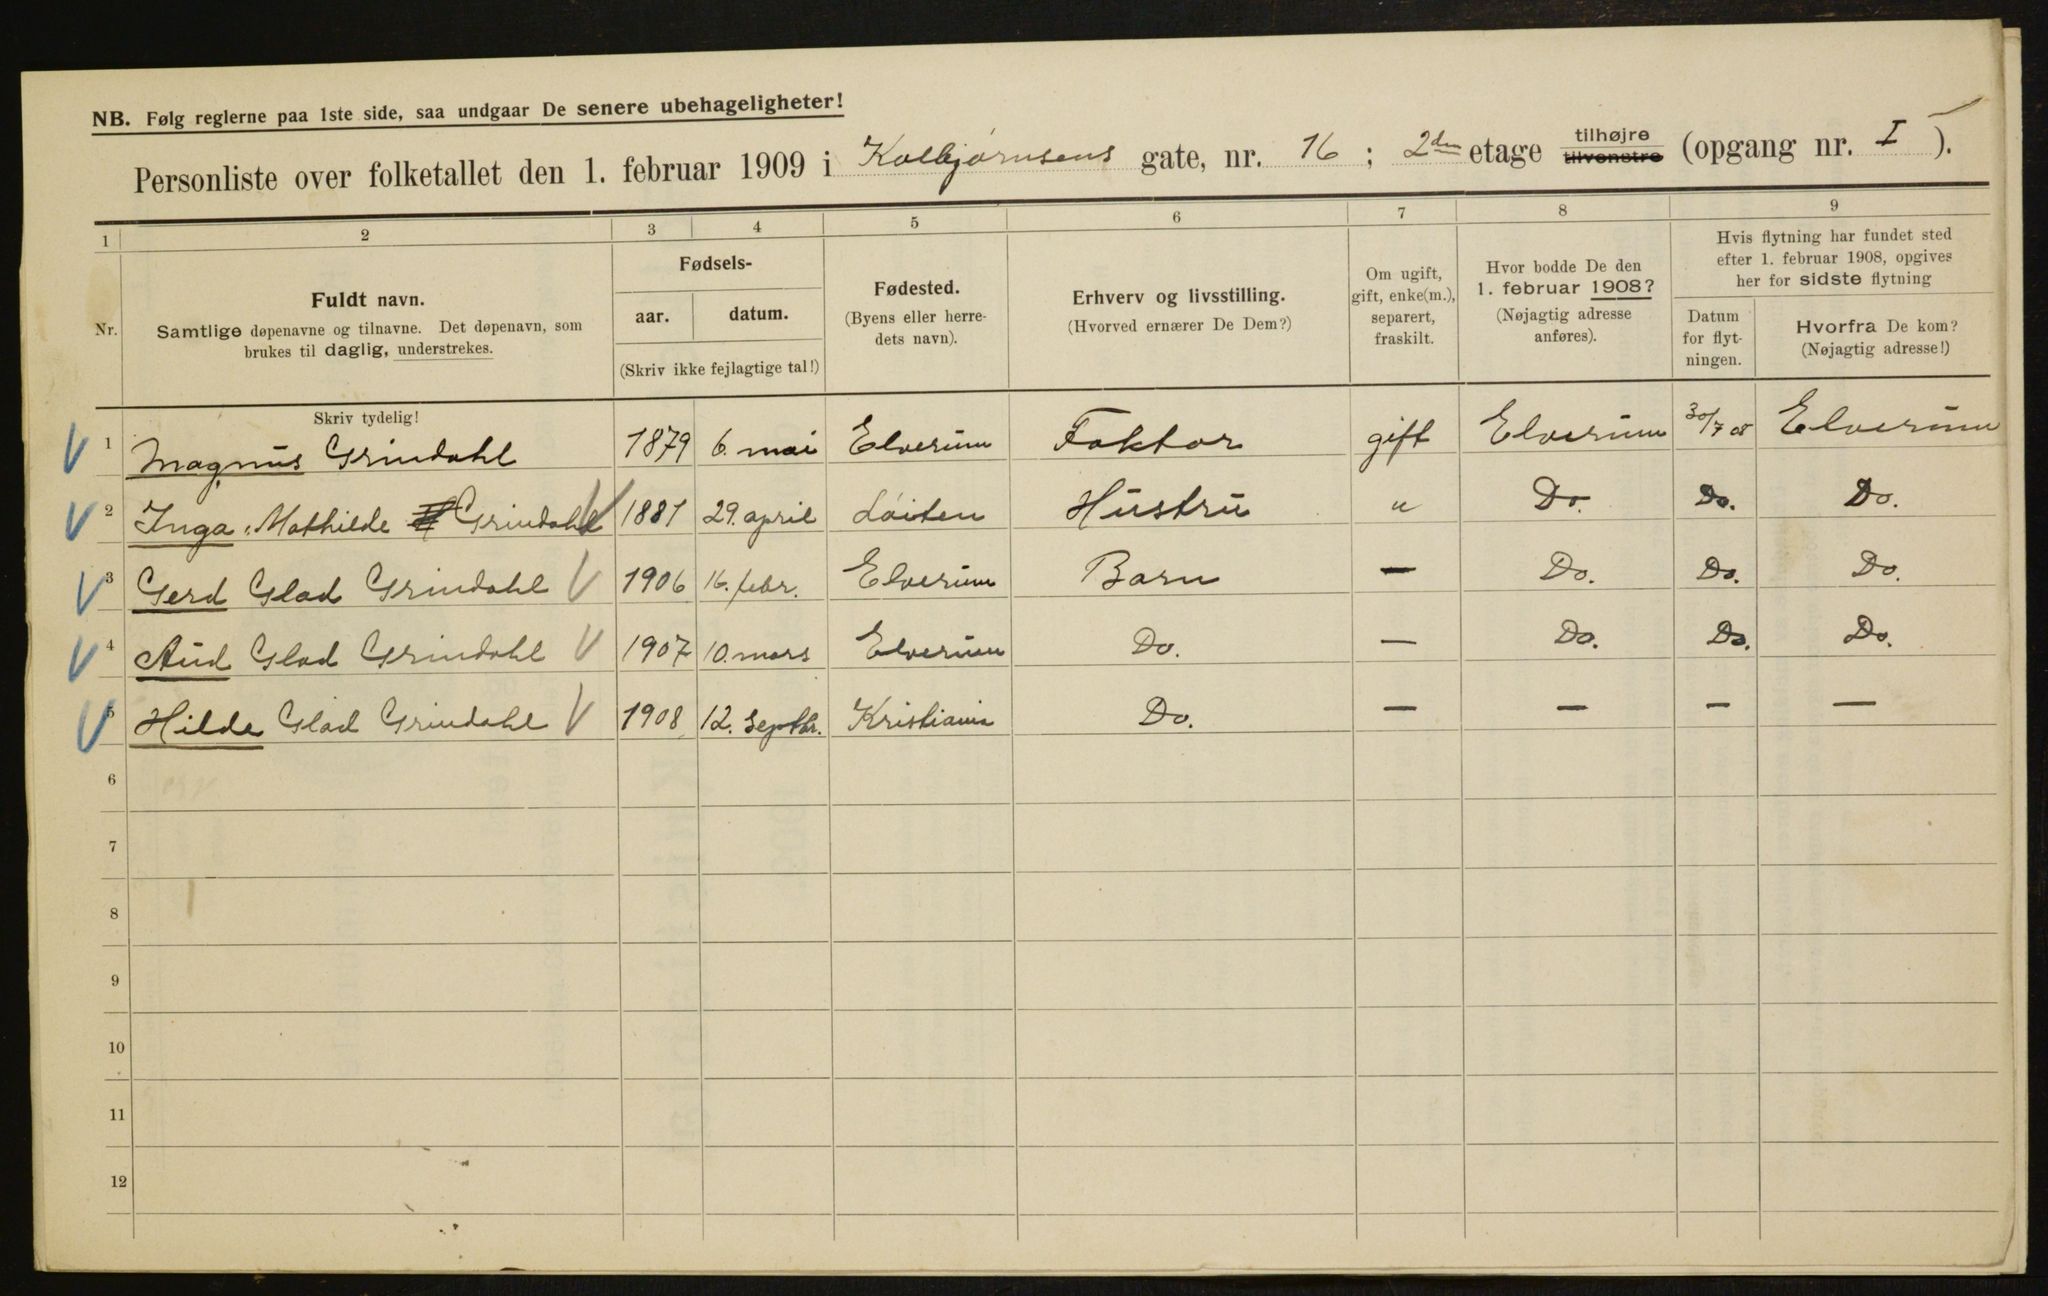 NB. Følg reglerne paa 1ste side, saa undgaar De senere ubehageligheter!
Personliste over folketallet den 1. februar 1909 i Kolbjørnsens gate, nr. 16; 2den etage tilhøjre tilvenstre (opgang nr. I).
1 2 3 4 5 6 7 8 9
Nr.
Fuldt navn.
Samtlige døpenavne og tilnavne. Det døpenavn, som
brukes til daglig, understrekes.
Skriv tydelig!
Fødsels-
aar. datum.
(Skriv ikke fejlagtige tal!)
Fødested.
(Byens eller herre-
dets navn).
Erhverv og livsstilling.
(Hvorved ernærer De Dem?)
Om ugift,
gift, enke(m.),
separert,
fraskilt.
Hvor bodde De den
1. februar 1908?
(Nøjagtig adresse
anføres).
Hvis flytning har fundet sted
efter 1. februar 1908, opgives
her for sidste flytning
Datum
for flyt-
ningen.
Hvorfra De kom?
(Nøjagtig adresse!)
1 Magnus Grindahl 1879 6. mai Elverum Faktor gift Elverum 30/7 08 Elverum
2 Inga Mathilde Grindahl 1881 29. april Løiten Hustru " Do. Do. Do.
3 Gerd Glad Grindahl 1906 16. febr. Elverum Barn — Do. Do. Do.
4 Aud Glad Grindahl 1907 10. mars Elverum Do. — Do. Do. Do.
5 Hilde Glad Grindahl 1908 12. Septbr. Kristiania Do. — — — —
6
7
8
9
10
11
12